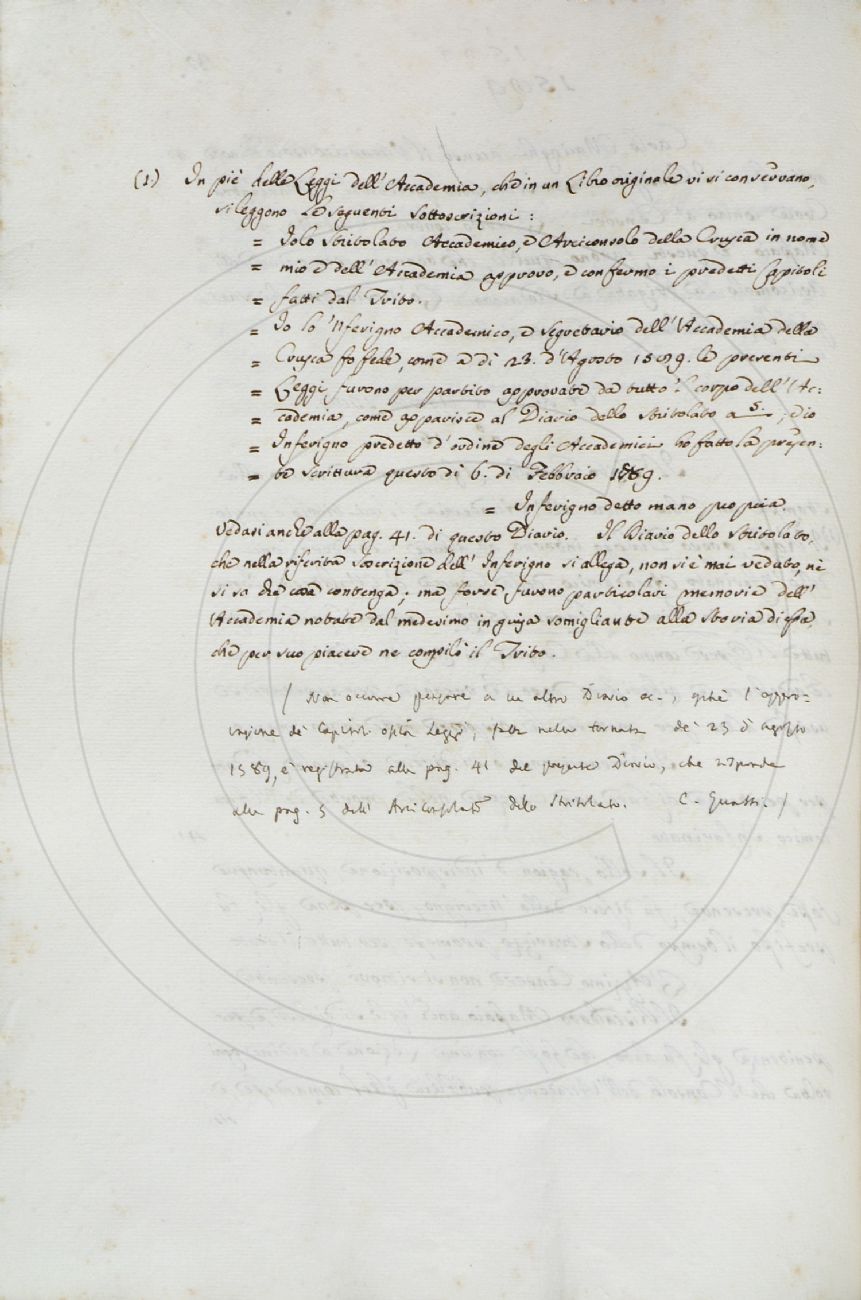 (1) In piè delle Leggi dell'Accademia, che in un Libro originale vi si conservano,
si leggono le seguenti sottoscrizioni:
= Io lo Stritolato Accademico, e Arciconsolo della Crusca in nome
= mio e dell'Accademia approvo, e confermo i predetti Capitoli
= fatti dal Trito.
= Io lo 'Nferigno Accademico, e Segretario dell'Accademia della
= Crusca fo fede, come a dì 23. d'Agosto 1589. le presenti
= Leggi furono per partito approvate da tutto 'l corpo dell'Ac-
= cademia, come apparisce al Diario dello Stritolato a 5, ed io
= Inferigno predetto d'ordine degli Accademici ho fatto la presen-
= te scrittura questo dì 6. di Febbraio 1589.
= Inferigno detto mano propria.
Vedasi anche alla pag. 41. di questo Diario. Il Diario dello Stritolato,
che nella riferita soscrizione dell'Inferigno si allega, non si è mai veduto, nè
si sa che cosa contenga; ma forse furono particolari memorie dell'
Accademia notate dal medesimo in guisa somigliante alla Storia di essa,
che per suo piacere ne compilò il Trito.
/ Non occorre pensare a un altro Diario ec., giacchè l'appro-
vazione de' Capitoli ossia Leggi, fatta nella tornata de' 23 d'agosto
1589, è registrata alla pag. 41 del presente Diario, che risponde
alla pag. 5 dell'Arciconsolato dello Stritolato. C. Guasti. /